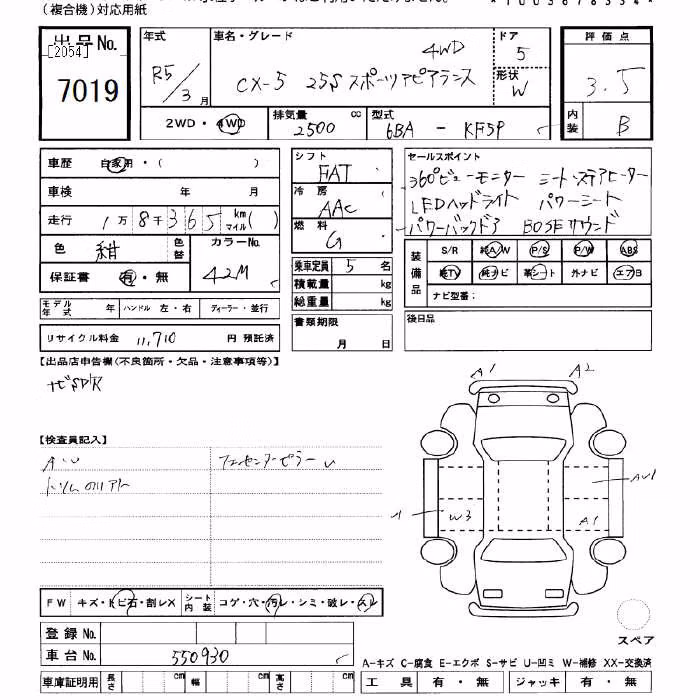 (複合機)対応用紙
出品No.
[2054]
7019
年式
R5/3月
車名・グレード
4WD
CX-5 25S スポーツアピアランス
ドア
5
形状
W
評価点
3.5
内装
B
2WD・4WD
排気量
2500
cc
型式
6BA - KF5P
車歴 自家用・( )
車検 年 月
走行 1万8千365 km マイル( )
色 紺 色替
カラーNo.
42M
保証書 有・無
モデル年式 年 ハンドル 左・右 ディーラー・並行
リサイクル料金 11,710 円 預託済
シフト
FAT
冷房
AAC
燃料
G
乗車定員 5 名
積載量 kg
総重量 kg
書類期限
月 日
セールスポイント
360°ビューモニター シート・ステアヒーター
LEDヘッドライト パワーシート
パワーバックドア BOSEサウンド
装備品
S/R 純A/W P/S P/W ABS
純TV 純ナビ 革シート 外ナビ エアB
ナビ型番:
後日品
【出品店申告欄(不良箇所・欠品・注意事項等)】
ナビSD/R
【検査員記入】
A・U
F W キズ・トビ石・割レX
シート内装 コゲ・穴・汚レ・シミ・破レ・スレ
登録 No.
車台 No. 550930
車庫証明用 長さ cm 幅 cm 高さ cm
A1
A2
AU1
A1
W3
スペア
A-キズ C-腐食 E-エクボ S-サビ U-凹ミ W-補修 XX-交換済
工具 有・無 ジャッキ 有・無